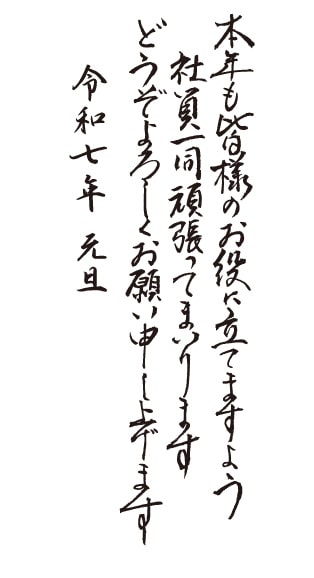 本年も皆様のお役に立てますよう
社員一同頑張ってまいります
どうぞよろしくお願い申し上げます
令和七年 元旦